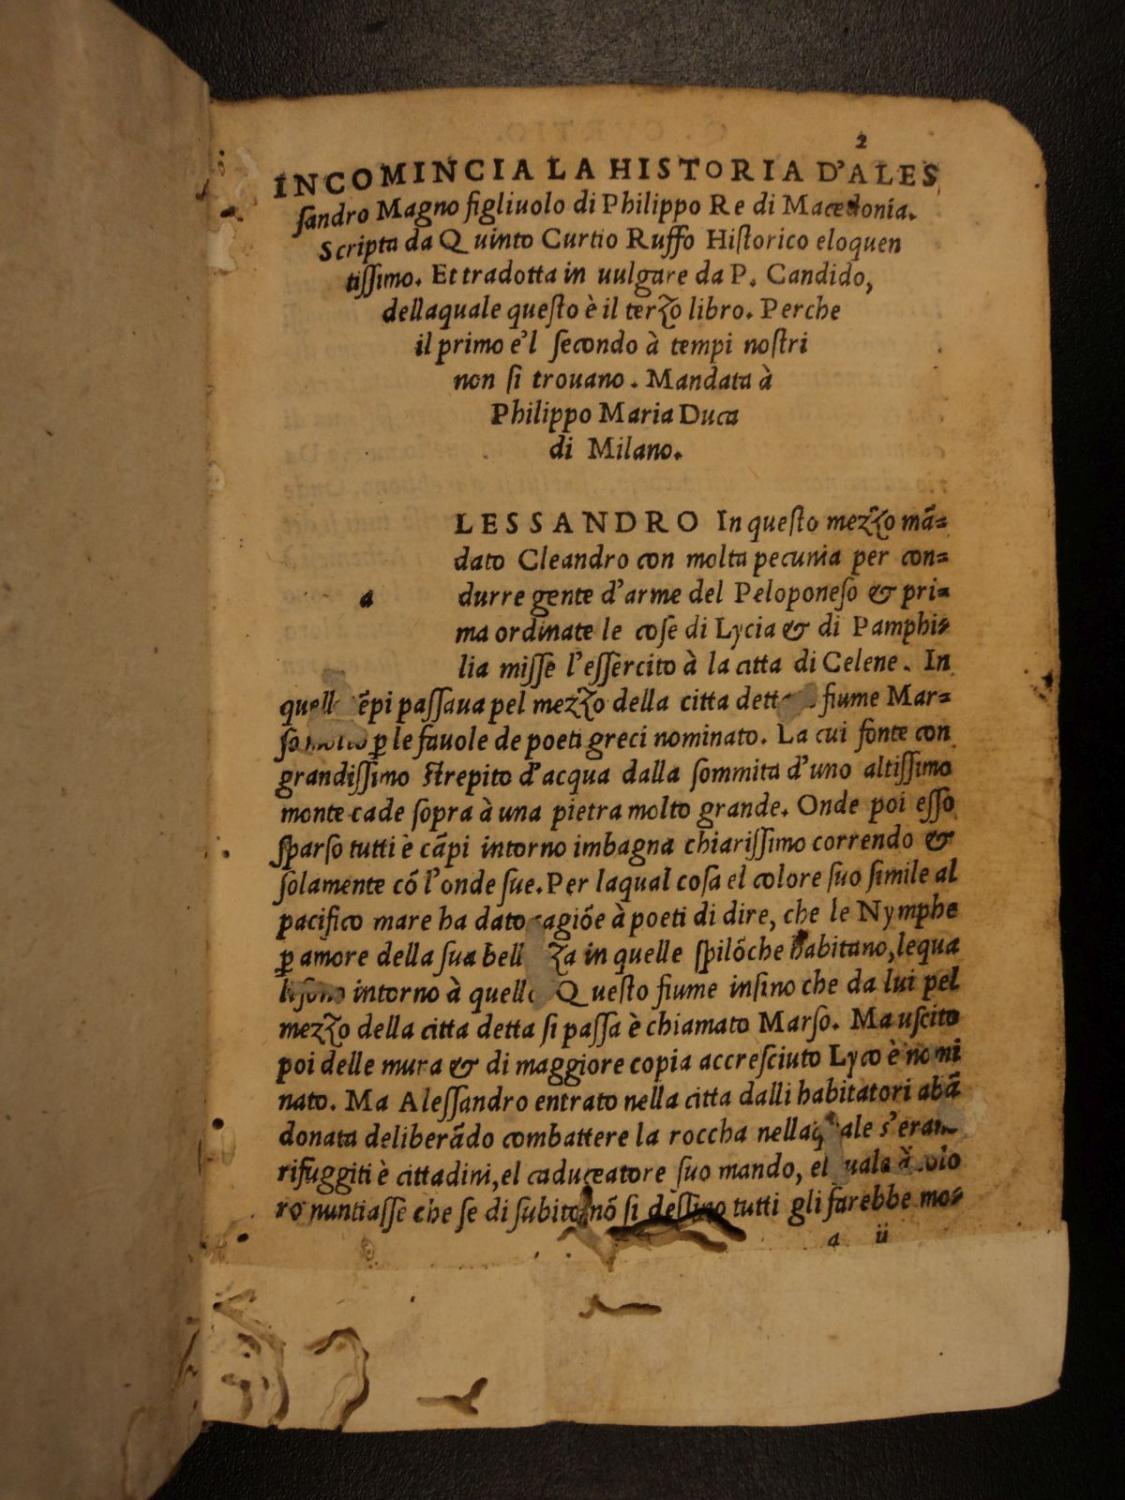 2
INCOMINCIA LA HISTORIA D'ALES
ſandro Magno figliuolo di Philippo Re di Macedonia.
Scripta da Quinto Curtio Ruffo Hiſtorico eloquen
tiſſimo. Et tradotta in uulgare da P. Candido,
dellaquale queſto è il terzo libro. Perche
il primo e'l ſecondo à tempi noſtri
non ſi trouano. Mandata à
Philippo Maria Duca
di Milano.
LESSANDRO In queſto mezzo mã=
dato Cleandro con molta pecunia per con=
a durre gente d'arme del Peloponeſo & pri=
ma ordinate le coſe di Lycia & di Pamphi=
lia miſſe l'eſſercito à la citta di Celene. In
ẽpi paſſaua pel mezzo della citta fiume Mar=
ſo ꝑ le fauole de poeti greci nominato. La cui fonte con
grandiſſimo ſtrepito d'acqua dalla ſommita d'uno altiſſimo
monte cade ſopra à una pietra molto grande. Onde poi eſſo
ſparſo tutti è cãpi intorno imbagna chiariſſimo correndo &
ſolamente cõ l'onde ſue. Per laqual coſa el colore ſuo ſimile al
pacifico mare ha dato cagiõe à poeti di dire, che le Nymphe
ꝑ amore della ſua bell za in quelle ſpilõche habitano, lequa
intorno à quell Queſto fiume inſino che da lui pel
mezzo della citta detta ſi paſſa è chiamato Marſo. Ma uſcito
poi delle mura & di maggiore copia accreſciuto Lyco è nomi
nato. Ma Aleſſandro entrato nella citta dalli habitatori abã
donata deliberãdo combattere la roccha nellaquale s'eran
rifuggiti è cittadini, el caduceatore ſuo mando, el quale à
ro nuntiaſſe che ſe di ſubito nõ ſi deſſino tutti gli farebbe mo=
a ii